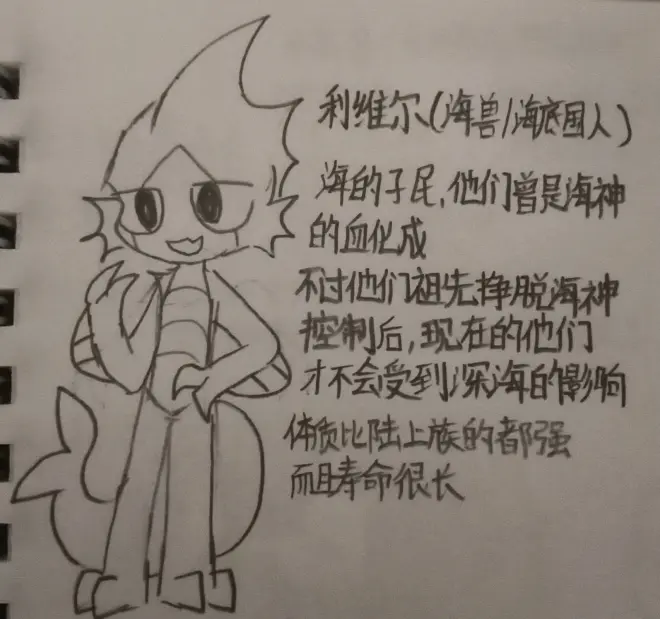 利维尔(海兽/海底国人)
海的子民,他们曾是海神
的血化成
不过他们祖先挣脱海神
控制后,现在的他们
才不会受到深海的影响
体质比陆上族的都强
而且寿命很长